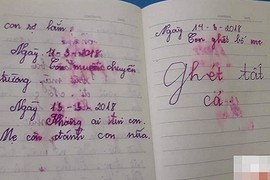 con sợ lắm.
Ngày 11-3-2018
Con muốn chuyển
trường
Ngày 13-3-2018
Không ai tin con.
Mẹ còn đánh con nữa.
Ngày 14-3-2018
Con ghét bố mẹ.
Ghét tất
cả